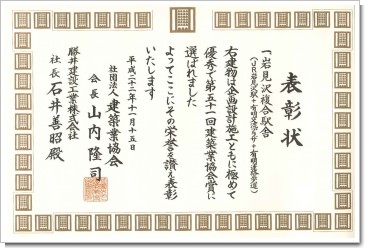 表彰状
一、岩見沢複合駅舎
(JR岩見沢駅・有明交流プラザ・有明連絡歩道)
右建物は企画設計施工ともに極めて
優秀で第五十一回建築業協会賞に
選ばれました
よってここにその栄誉を讃え表彰
いたします
平成二十二年十一月十五日
社団法人 建築業協会
会長 山内隆司
勝井建設工業株式会社
社長 石井善昭殿